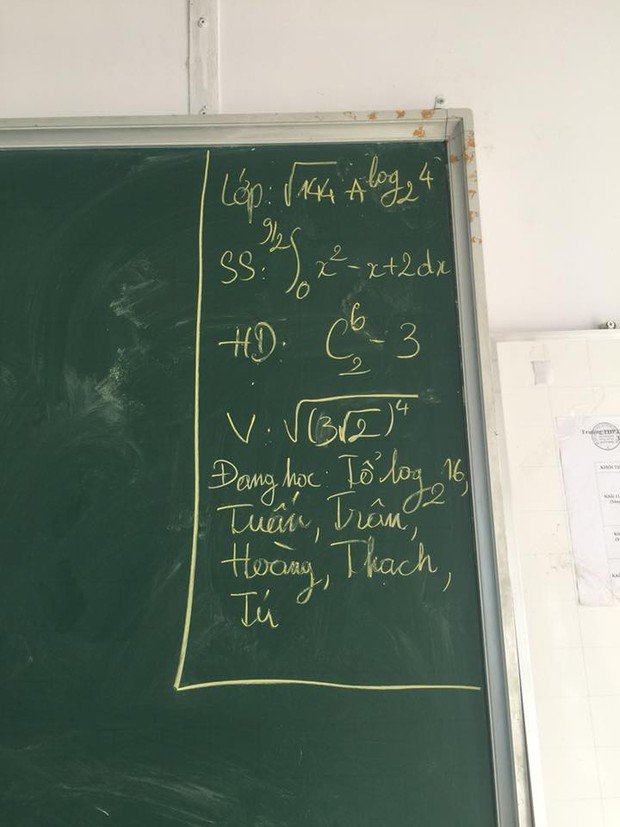 Lớp: √144 A^log₂4
SS: ∫₀^(9/2) x² - x + 2dx
HD: C₂⁶ - 3
V: √(3√2)⁴
Đang học: Tổ log₂16,
Tuấn, Trân,
Hoàng, Thạch,
Tú